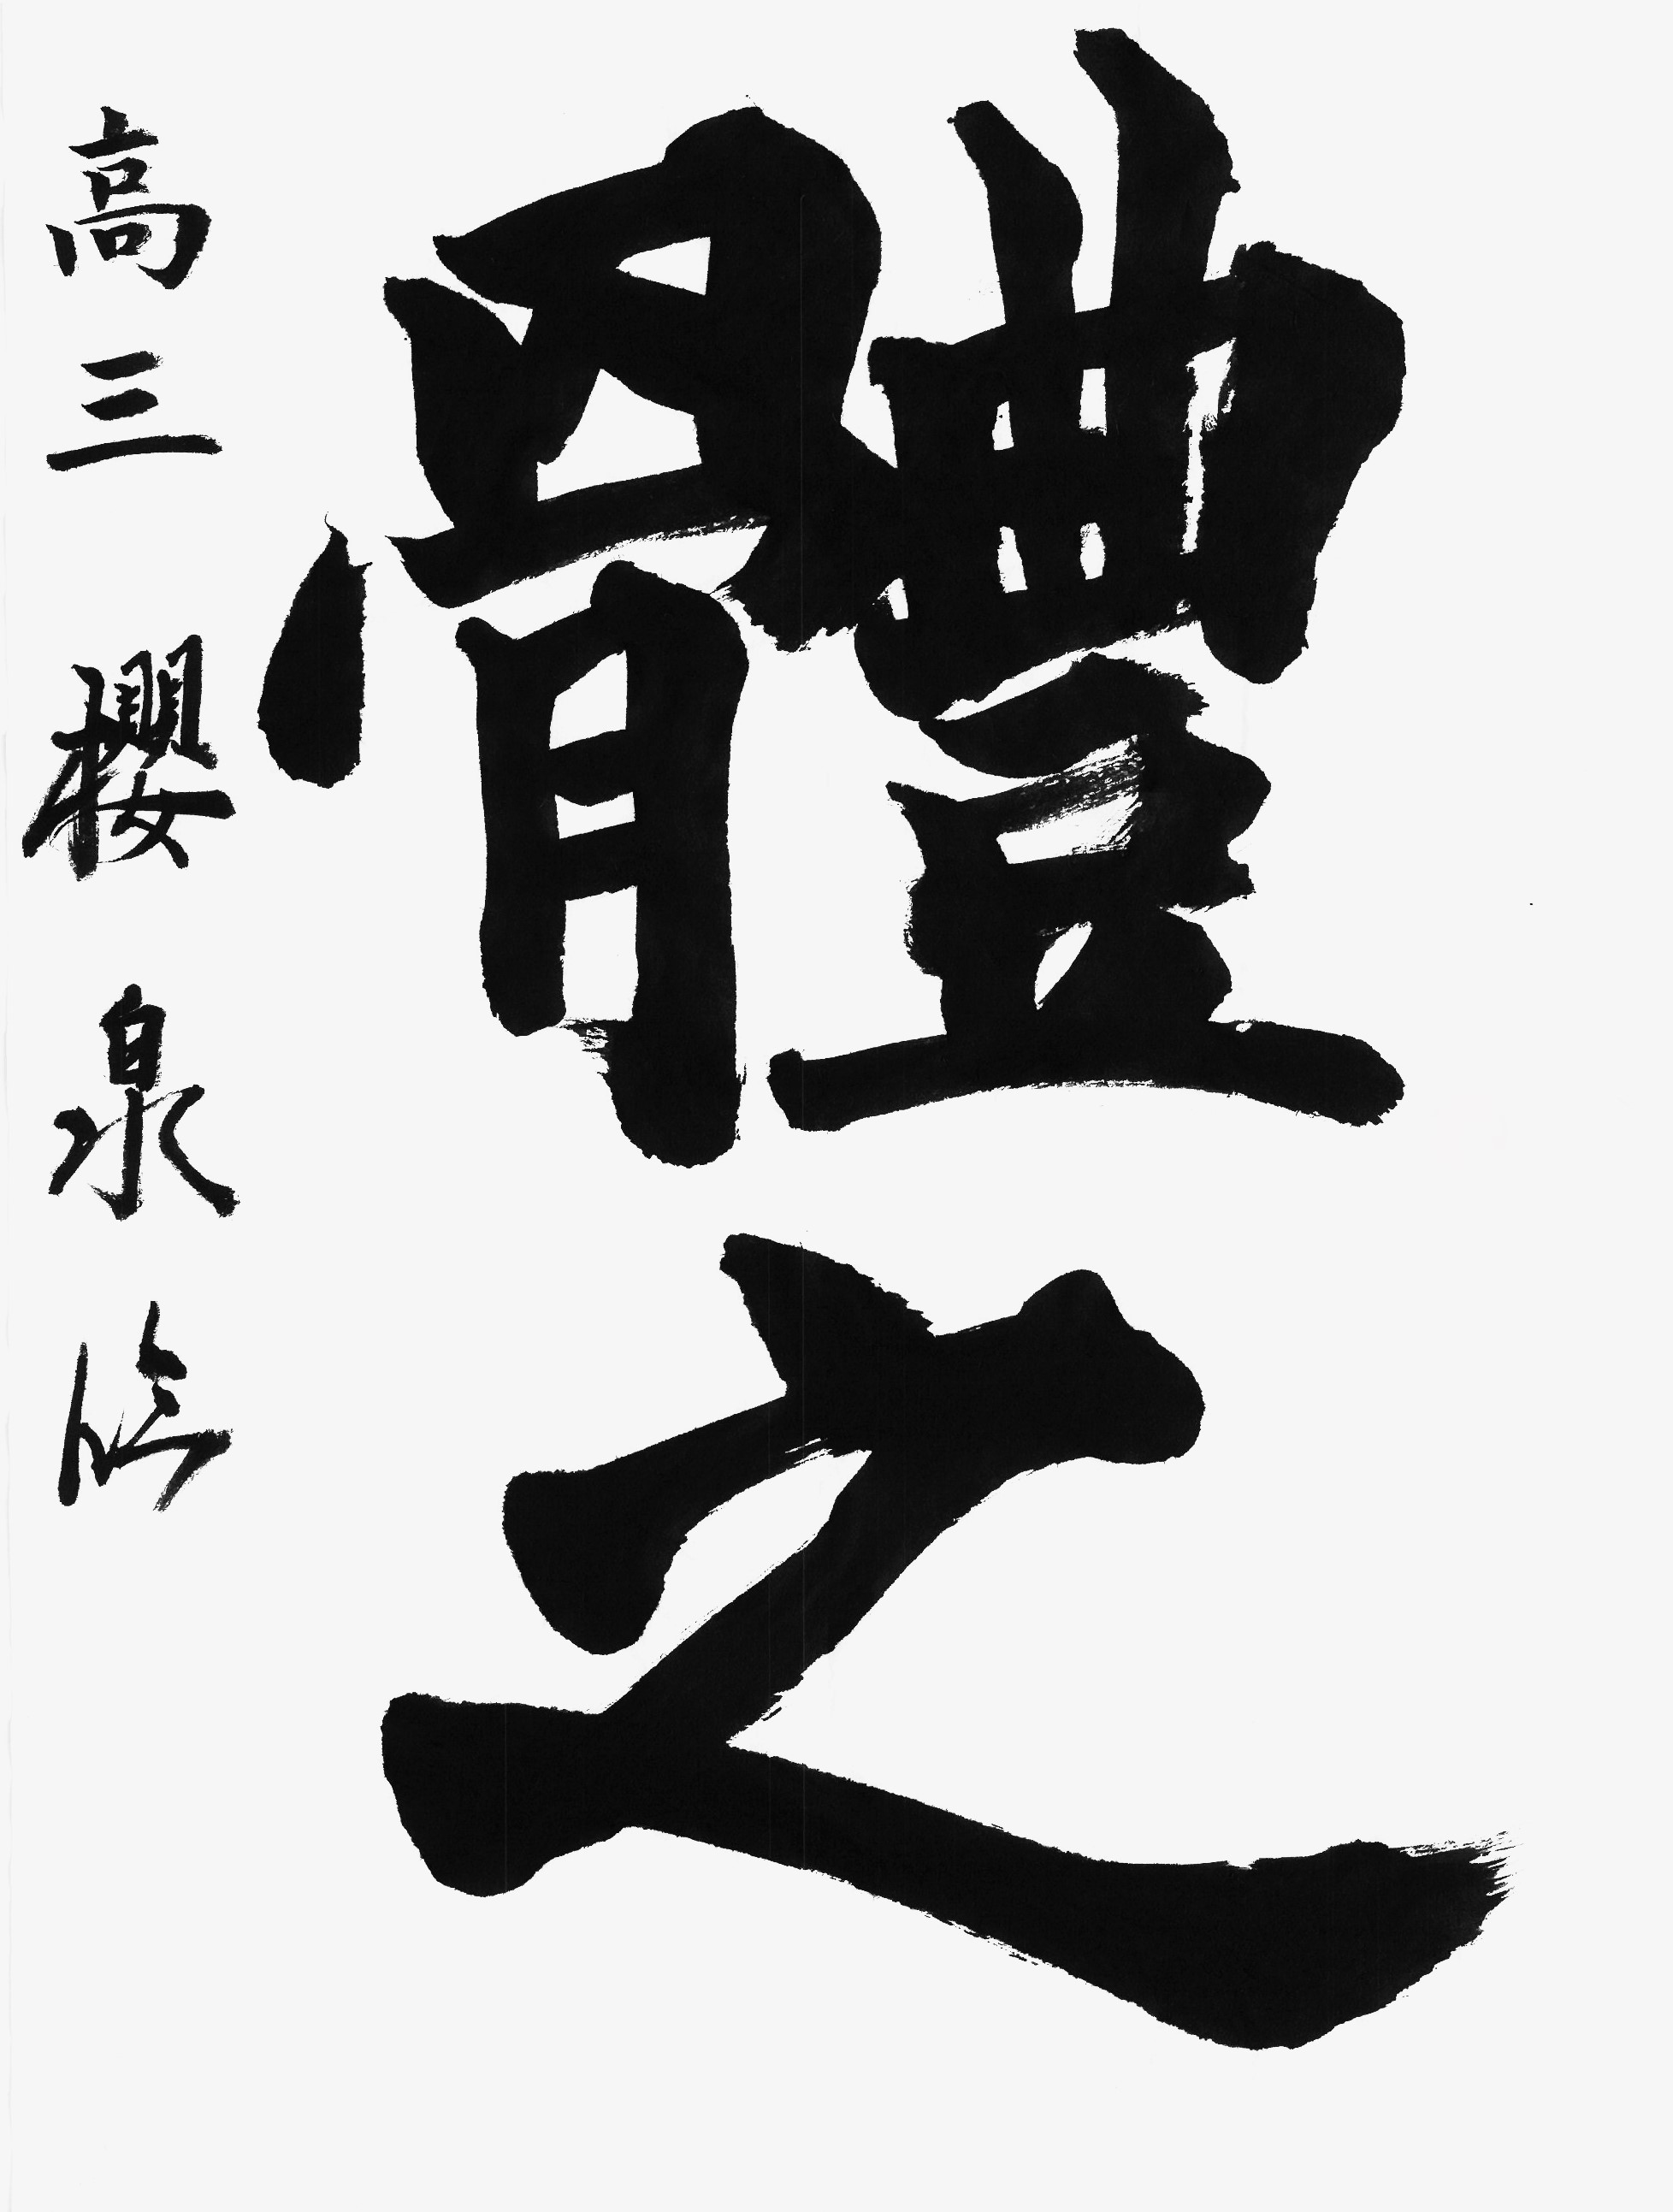 體之
高三 櫻泉臨